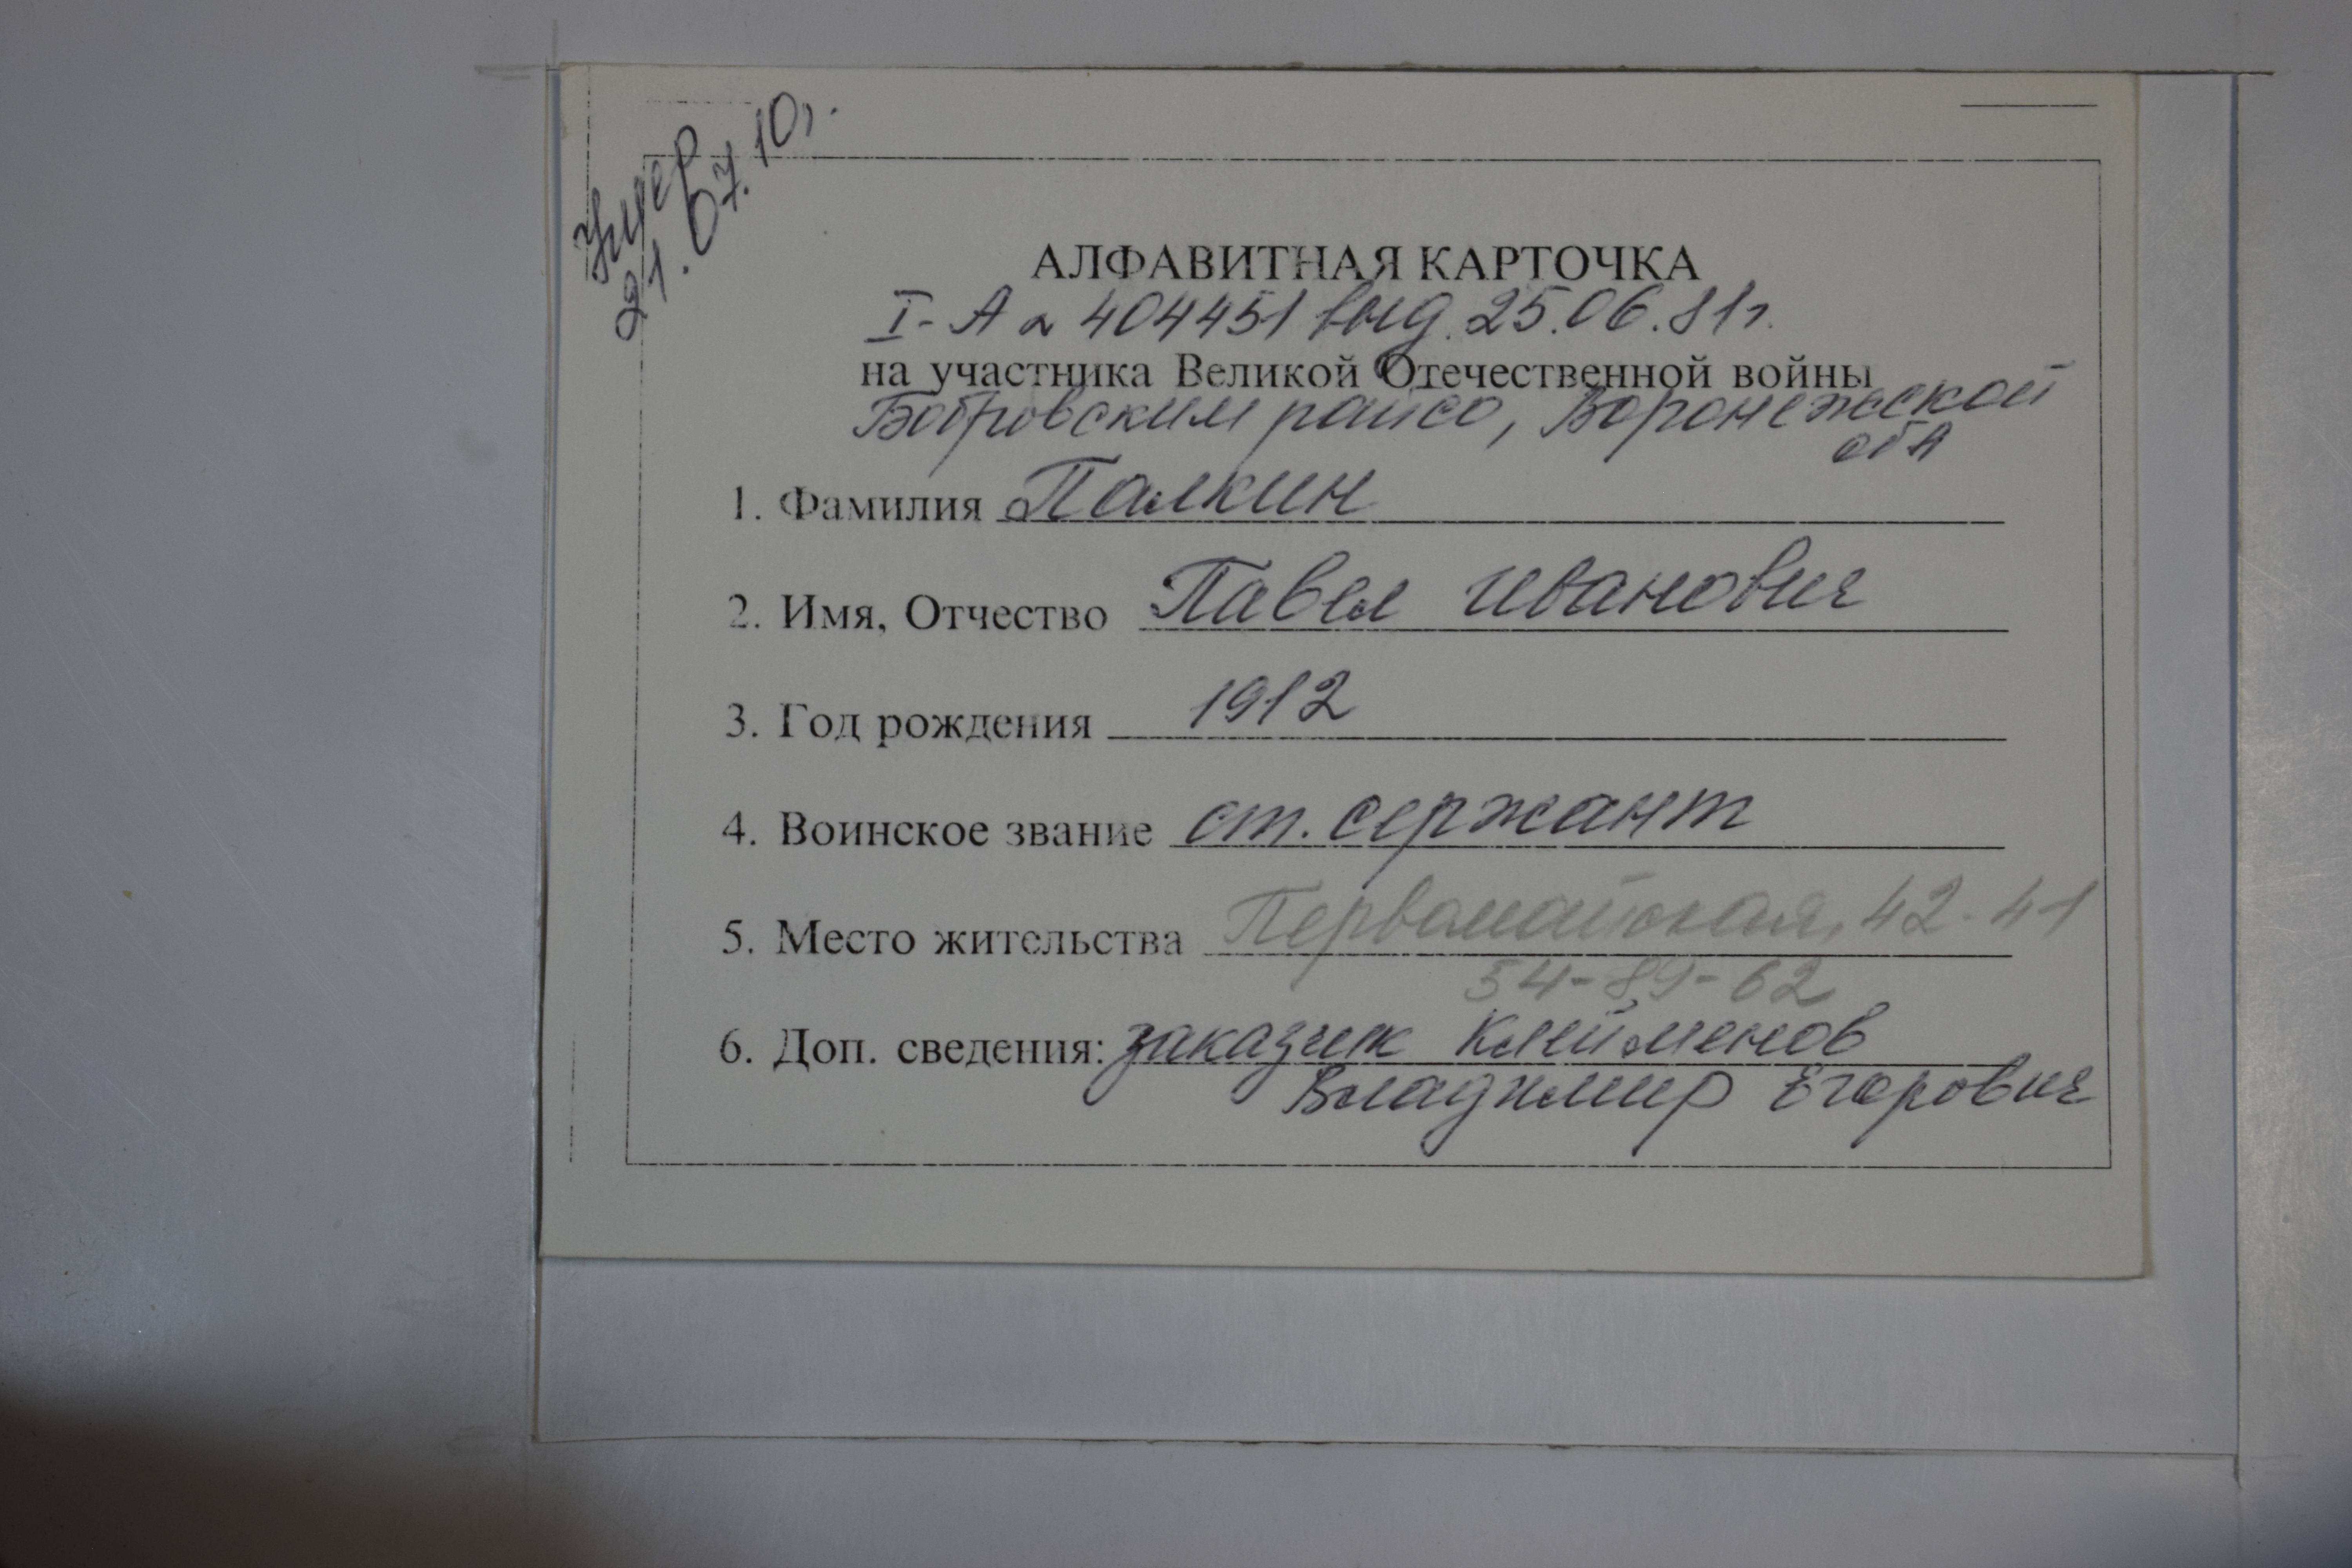 Умер
21.07.10г.
АЛФАВИТНАЯ КАРТОЧКА
I-А № 404451 выд. 25.06.81г.
на участника Великой Отечественной войны
Бобровским райсо, Воронежской
обл
1. Фамилия Палкин
2. Имя, Отчество Павел Иванович
3. Год рождения 1912
4. Воинское звание ст. сержант
5. Место жительства Первомайская, 42-41
54-89-62
6. Доп. сведения: заказчик Клейменов
Владимир Егорович